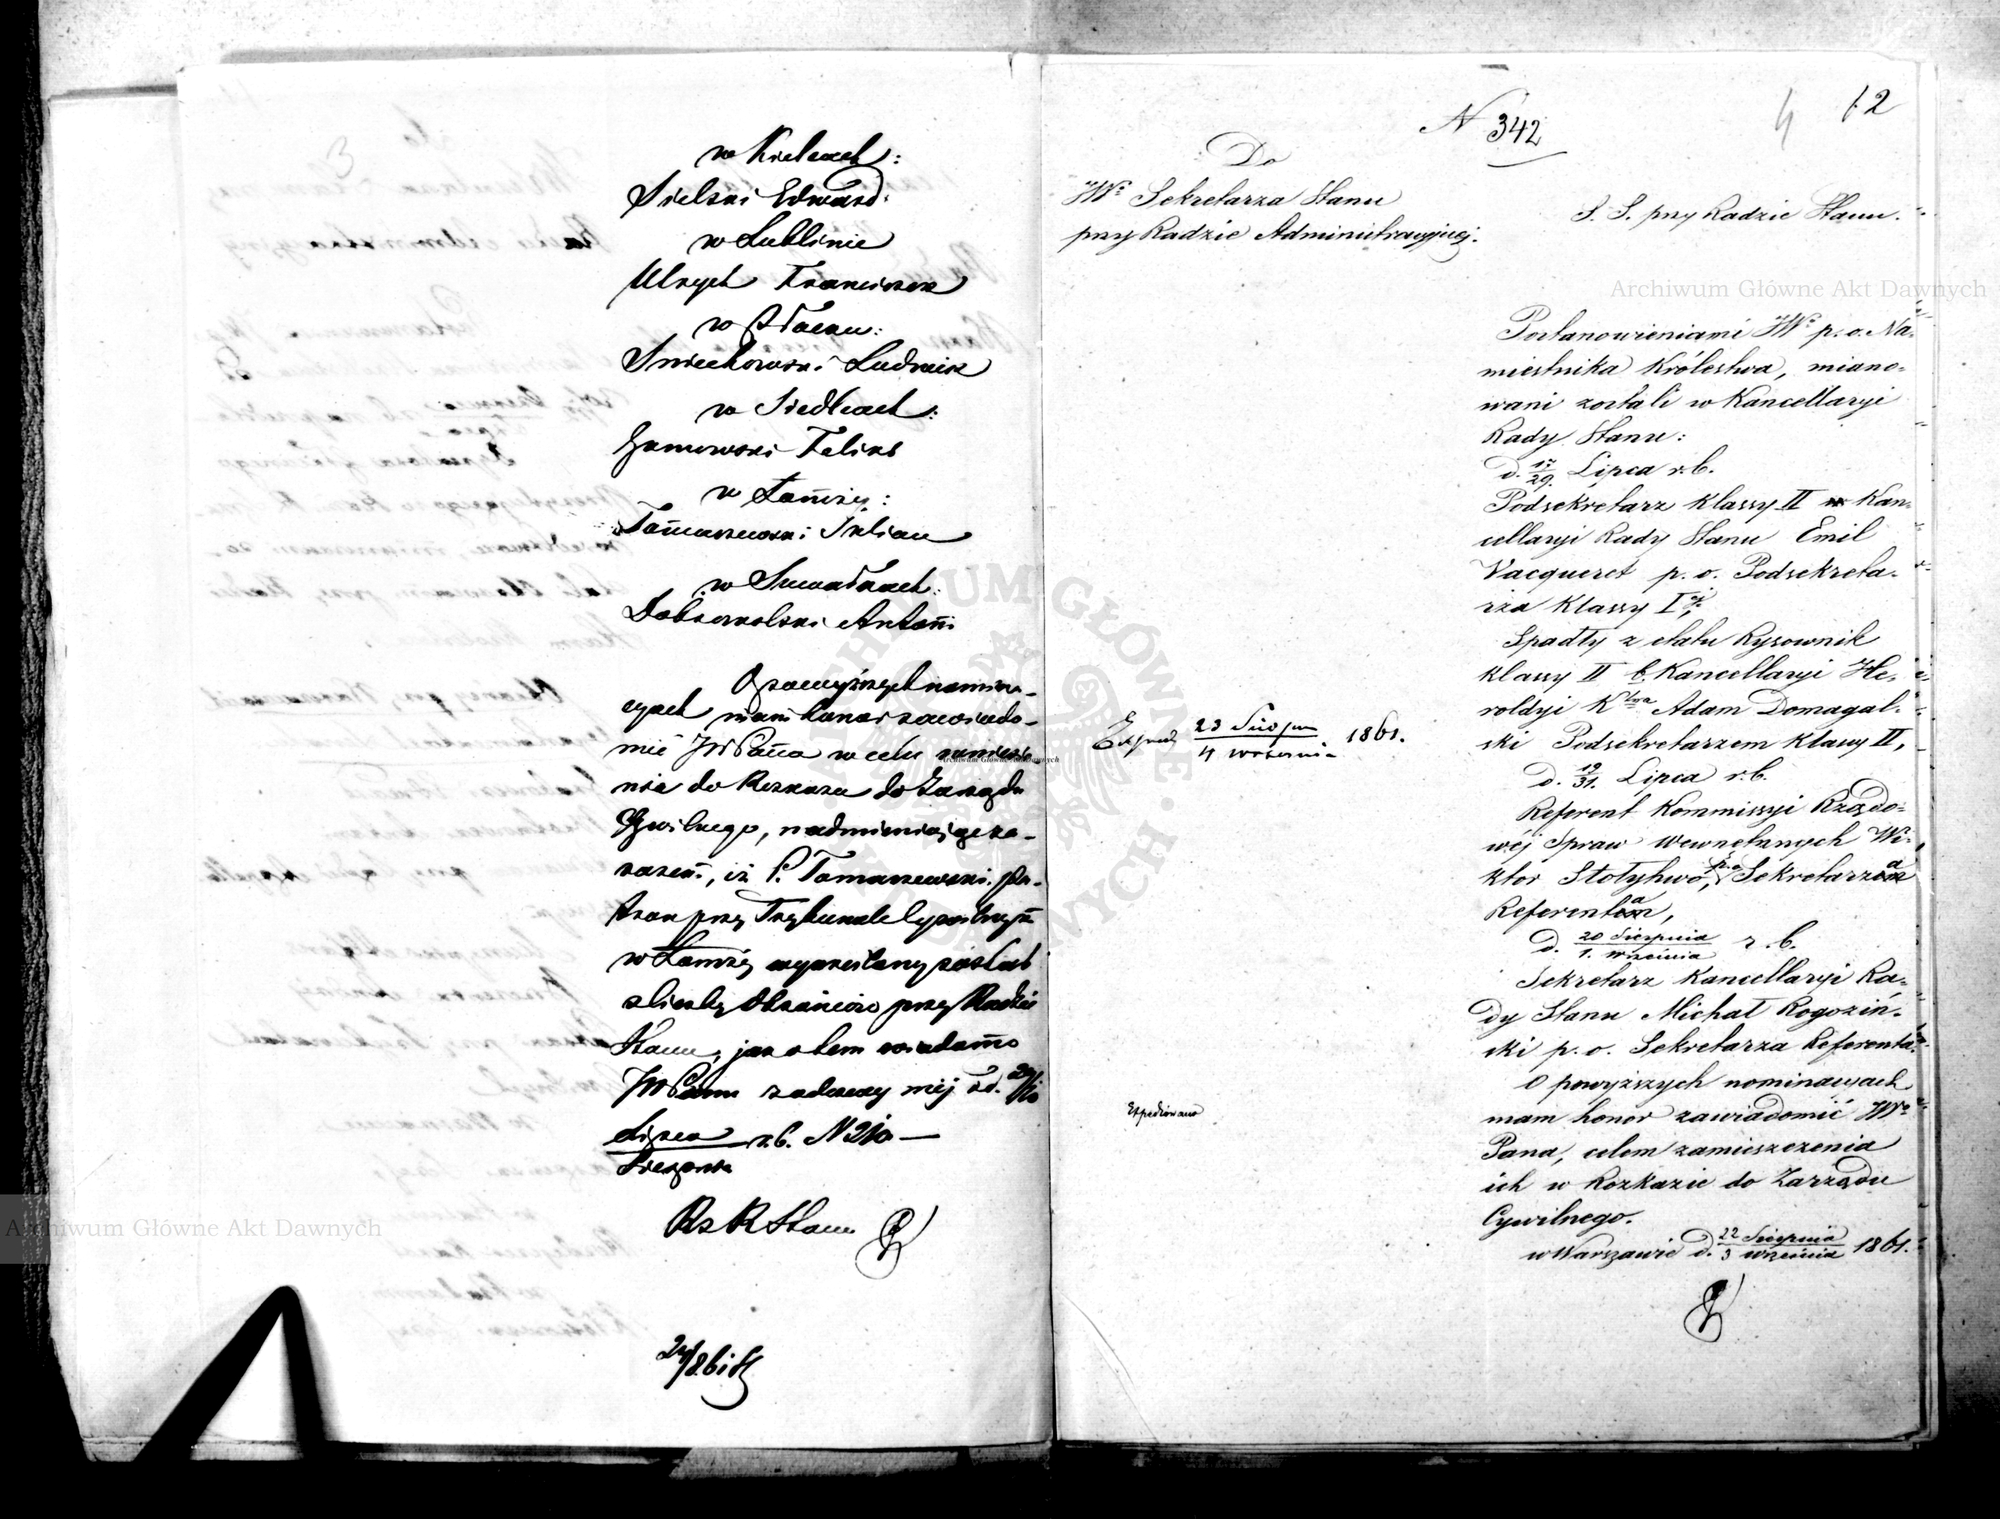 w Kielcach:
Sielski Edward.
w Lublinie
Ulrych Franciszek
w Płocku:
Smiechowski Ludwik
w Siedlcach:
Gumowski Felix
w Łomży:
Tomaszewski Julian
w Suwałkach:
Dobrowolski Antoni
O powyższych nomina-
cyach mam honor zawiado-
mić JW Pana w celu zamieszcze-
nia do Rozkazu do Zarządu
Cywilnego, nadmieniając za-
razem, iż P. Tomaszewski Pa-
tron przy Trybunale Cywilnym
w Łomży wykreślony został
z liczby Obrońców przy Radzie
Stanu, jak o tem wiadomo
JW Panu z odezwy mej z d.
Lipca
Sierpnia r.b. N 210 —
Rz R Stanu
3
4 12
N 342
Do
JWo Sekretarza Stanu
przy Radzie Administracyjnej.
S. S. przy Radzie Stanu.
Postanowieniami JWo p. o. Na-
miestnika Królestwa, miano-
wani zostali w Kancellaryi
Rady Stanu:
d. 17/29. Lipca r.b.
Podsekretarz klassy II w Kan-
cellaryi Rady Stanu Emil
Vacqueret p. o. Podsekreta-
rza klassy Iej,
Spadły z etatu Rysownik
klassy II b. Kancellaryi He-
roldyi Klwa Adam Domagal-
ski Podsekretarzem klassy II,
d. 19/31. Lipca r.b.
Referent Kommissyi Rządo-
wéj Spraw Wewnętrznych Wi-
ktor Stotyhwo, p.o. Sekretarza
Referenta,
d. 20 Sierpnia/1. września r.b.
Sekretarz Kancellaryi Ra-
dy Stanu Michał Rogoziń-
ski p. o. Sekretarza Referenta.
O powyższych nominacyach
mam honor zawiadomić JWo
Pana, celem zamieszczenia
ich w Rozkazie do Zarządu
Cywilnego.
w Warszawie d. 22 Sierpnia/3 września 1861.
Expied 23 Sierpnia/4 września 1861.
Expediowano
Archiwum Główne Akt Dawnych
Archiwum Główne Akt Dawnych
Archiwum Główne Akt Dawnych
ARCHIWUM GŁÓWNE AKT DAWNYCH